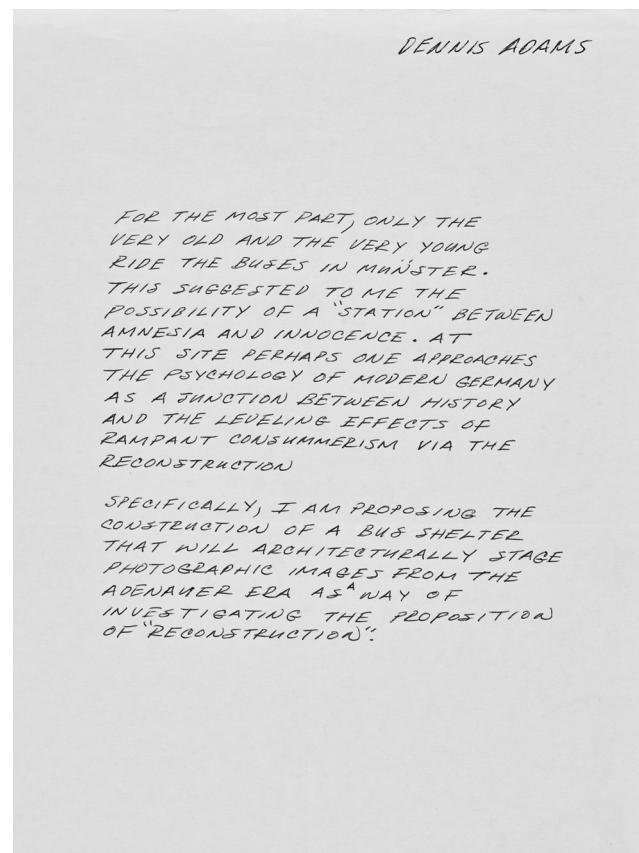 DENNIS ADAMS
FOR THE MOST PART, ONLY THE
VERY OLD AND THE VERY YOUNG
RIDE THE BUSES IN MÜNSTER.
THIS SUGGESTED TO ME THE
POSSIBILITY OF A "STATION" BETWEEN
AMNESIA AND INNOCENCE. AT
THIS SITE PERHAPS ONE APPROACHES
THE PSYCHOLOGY OF MODERN GERMANY
AS A JUNCTION BETWEEN HISTORY
AND THE LEVELING EFFECTS OF
RAMPANT CONSUMMERISM VIA THE
RECONSTRUCTION
SPECIFICALLY, I AM PROPOSING THE
CONSTRUCTION OF A BUS SHELTER
THAT WILL ARCHITECTURALLY STAGE
PHOTOGRAPHIC IMAGES FROM THE
ADENAUER ERA AS A WAY OF
INVESTIGATING THE PROPOSITION
OF "RECONSTRUCTION".